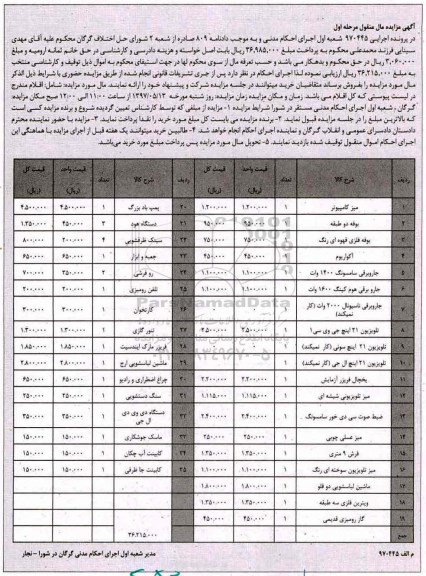 آگهی مزایده مال منقول مرحله اول
در پرونده اجرایی ۹۷۰۴۴۵ شعبه اول اجرای احکام مدنی و به موجب دادنامه ۸۰۹ صادره از شعبه ۲ شورای حل اختلاف گرگان محکوم علیه آقای مهدی
سینایی فرزند محمدعلی محکوم به پرداخت مبلغ ۳۶,۹۸۵,۰۰۰ ریال بابت اصل خواسته و هزینه دادرسی و کارشناسی در حق خانم ارومیه و مبلغ
۳,۰۶۰,۰۰۰ ریال در حق محکوم و بدهکار می باشد و حسب تعرفه مال از سوی محکوم لها در جهت استیفای محکوم به اموال ذیل توقیف و کارشناسی منتخب
به مبلغ ۳۶,۲۱۵,۰۰۰ ریال ارزیابی نموده لذا اجرای احکام در نظر دارد پس از جری تشریفات قانونی انجام شده از طریق مزایده حضوری با شرایط ذیل الذکر
مال مورد مزایده را بفروش برساند متقاضیان خرید میتوانند در جلسه مزایده شرکت و پیشنهاد خود را ارائه نمایند. مال مورد مزایده: شامل اقلام مندرج
در لیست پیوستی که کل اقلام می باشد زمان و مکان مزایده: زمان مزایده: روز شنبه مورخه ۱۳۹۷/۰۵/۱۳ از ساعت ۱۱:۰۰ الی ۱۲:۰۰ صبح مکان مزایده:
گرگان، شعبه اول اجرای احکام مدنی مستقر در شورا شرایط مزایده: ۱- مزایده از مبلغی که توسط کارشناس تعیین گردیده شروع و برنده مزایده کسی است
که بالاترین مبلغ را در جلسه مزایده قبول نماید. ۲- برنده مزایده می بایست کل مبلغ مورد خرید را نقدا پرداخت نماید. ۳- مزایده با حضور نماینده محترم
دادستان دادسرای عمومی و انقلاب گرگان و نماینده اجرای احکام انجام خواهد شد. ۴- طالبین خرید میتوانند یک هفته قبل از اجرای مزایده با هماهنگی این
اجرای احکام اموال منقول توقیف شده بازدید نمایند. ۵- تحویل مال مورد مزایده پس پرداخت مبلغ مورد خرید می باشد.
ردیف شرح کالا تعداد قیمت واحد (ریال) قیمت کل (ریال) ردیف شرح کالا تعداد قیمت واحد (ریال) قیمت کل (ریال)
۱ میز کامپیوتر ۱ ۱.۲۰۰.۰۰۰ ۱.۲۰۰.۰۰۰ ۲۰ پمپ باد بزرگ ۱ ۴.۵۰۰.۰۰۰ ۴.۵۰۰.۰۰۰
۲ بوفه دو طبقه ۱ ۹۵۰.۰۰۰ ۹۵۰.۰۰۰ ۲۱ دستگاه هود ۳ ۴۵۰.۰۰۰ ۱.۳۵۰.۰۰۰
۳ بوفه فلزی قهوه ای رنگ ۱ ۷۵۰.۰۰۰ ۷۵۰.۰۰۰ ۲۲ سینک ظرفشویی ۴ ۲۰۰.۰۰۰ ۸۰۰.۰۰۰
۴ آکواریوم ۱ ۴۵۰.۰۰۰ ۴۵۰.۰۰۰ ۲۳ جعبه و ابزار ۱ ۶۵۰.۰۰۰ ۶۵۰.۰۰۰
۵ جاروبرقی سامسونگ ۱۴۰۰ وات ۱ ۱.۱۰۰.۰۰۰ ۱.۱۰۰.۰۰۰ ۲۴ رو فرشی ۲ ۳۵۰.۰۰۰ ۷۰۰.۰۰۰
۶ جارو برقی هوم کینگ ۱۶۰۰ وات ۱ ۱.۱۰۰.۰۰۰ ۱.۱۰۰.۰۰۰ ۲۵ تلفن رومیزی ۱ ۲۰۰.۰۰۰ ۲۰۰.۰۰۰
۷ جاروبرقی ناسیونال ۲۰۰۰ وات (کار نمیکند) ۱ ۲۶ کارتخوان ۱ ۳۰۰.۰۰۰ ۳۰۰.۰۰۰
۸ تلویزیون ۲۱ اینچ جی وی سی ۱ ۱ ۲.۵۰۰.۰۰۰ ۲.۵۰۰.۰۰۰ ۲۷ تنور گازی ۱ ۱.۳۰۰.۰۰۰ ۱.۳۰۰.۰۰۰
۹ تلویزیون ۲۱ اینچ سونی (کار نمیکند) ۱ ۲۸ فریزر مارک ایندسیت ۱ ۱.۸۵۰.۰۰۰ ۱.۸۵۰.۰۰۰
۱۰ تلویزیون ۲۱ اینچ ال جی (کار نمیکند) ۱ ۲۹ ماشین لباسشویی ارج ۱ ۲.۸۰۰.۰۰۰ ۲.۸۰۰.۰۰۰
۱۱ یخچال فریزر آزمایش ۱ ۲.۲۰۰.۰۰۰ ۲.۲۰۰.۰۰۰ ۳۰ چراغ اضطراری و رادیو ۱ ۶۵۰.۰۰۰ ۶۵۰.۰۰۰
۱۲ میز تلویزیونی شیشه ای ۱ ۱.۱۱۵.۰۰۰ ۱.۱۱۵.۰۰۰ ۳۱ سنگ دستشویی ۱ ۲۵۰.۰۰۰ ۲۵۰.۰۰۰
۱۳ ضبط صوت سی دی خور سامسونگ ۱ ۲.۴۰۰.۰۰۰ ۲.۴۰۰.۰۰۰ ۳۲ دستگاه دی وی دی ال جی ۱ ۳۵۰.۰۰۰ ۳۵۰.۰۰۰
۱۴ میز عسلی چوبی ۱ ۲۵۰.۰۰۰ ۲۵۰.۰۰۰ ۳۳ ماسک جوشکاری ۱ ۱۵۰.۰۰۰ ۱۵۰.۰۰۰
۱۵ فرش ۹ متری ۱ ۱.۳۵۰.۰۰۰ ۱.۳۵۰.۰۰۰ ۳۴ کابینت آب چکان ۱ ۱۵۰.۰۰۰ ۱۵۰.۰۰۰
۱۶ میز تلویزیون سوخته ای رنگ ۱ ۱.۱۰۰.۰۰۰ ۱.۱۰۰.۰۰۰ ۳۵ کابینت جا ظرفی ۱ ۱۵۰.۰۰۰ ۱۵۰.۰۰۰
۱۷ ماشین لباسشویی دو قلو ۱ ۱.۸۰۰.۰۰۰ ۱.۸۰۰.۰۰۰
۱۸ ویترین فلزی سه طبقه ۱ ۱.۳۵۰.۰۰۰ ۱.۳۵۰.۰۰۰
۱۹ گاز رومیزی قدیمی ۱ ۴۵۰.۰۰۰ ۴۵۰.۰۰۰
جمع ۳۶.۲۱۵.۰۰۰
م الف ۹۷۰۴۴۵ مدیر شعبه اول اجرای احکام مدنی گرگان در شورا - نجار
ParsNamadData